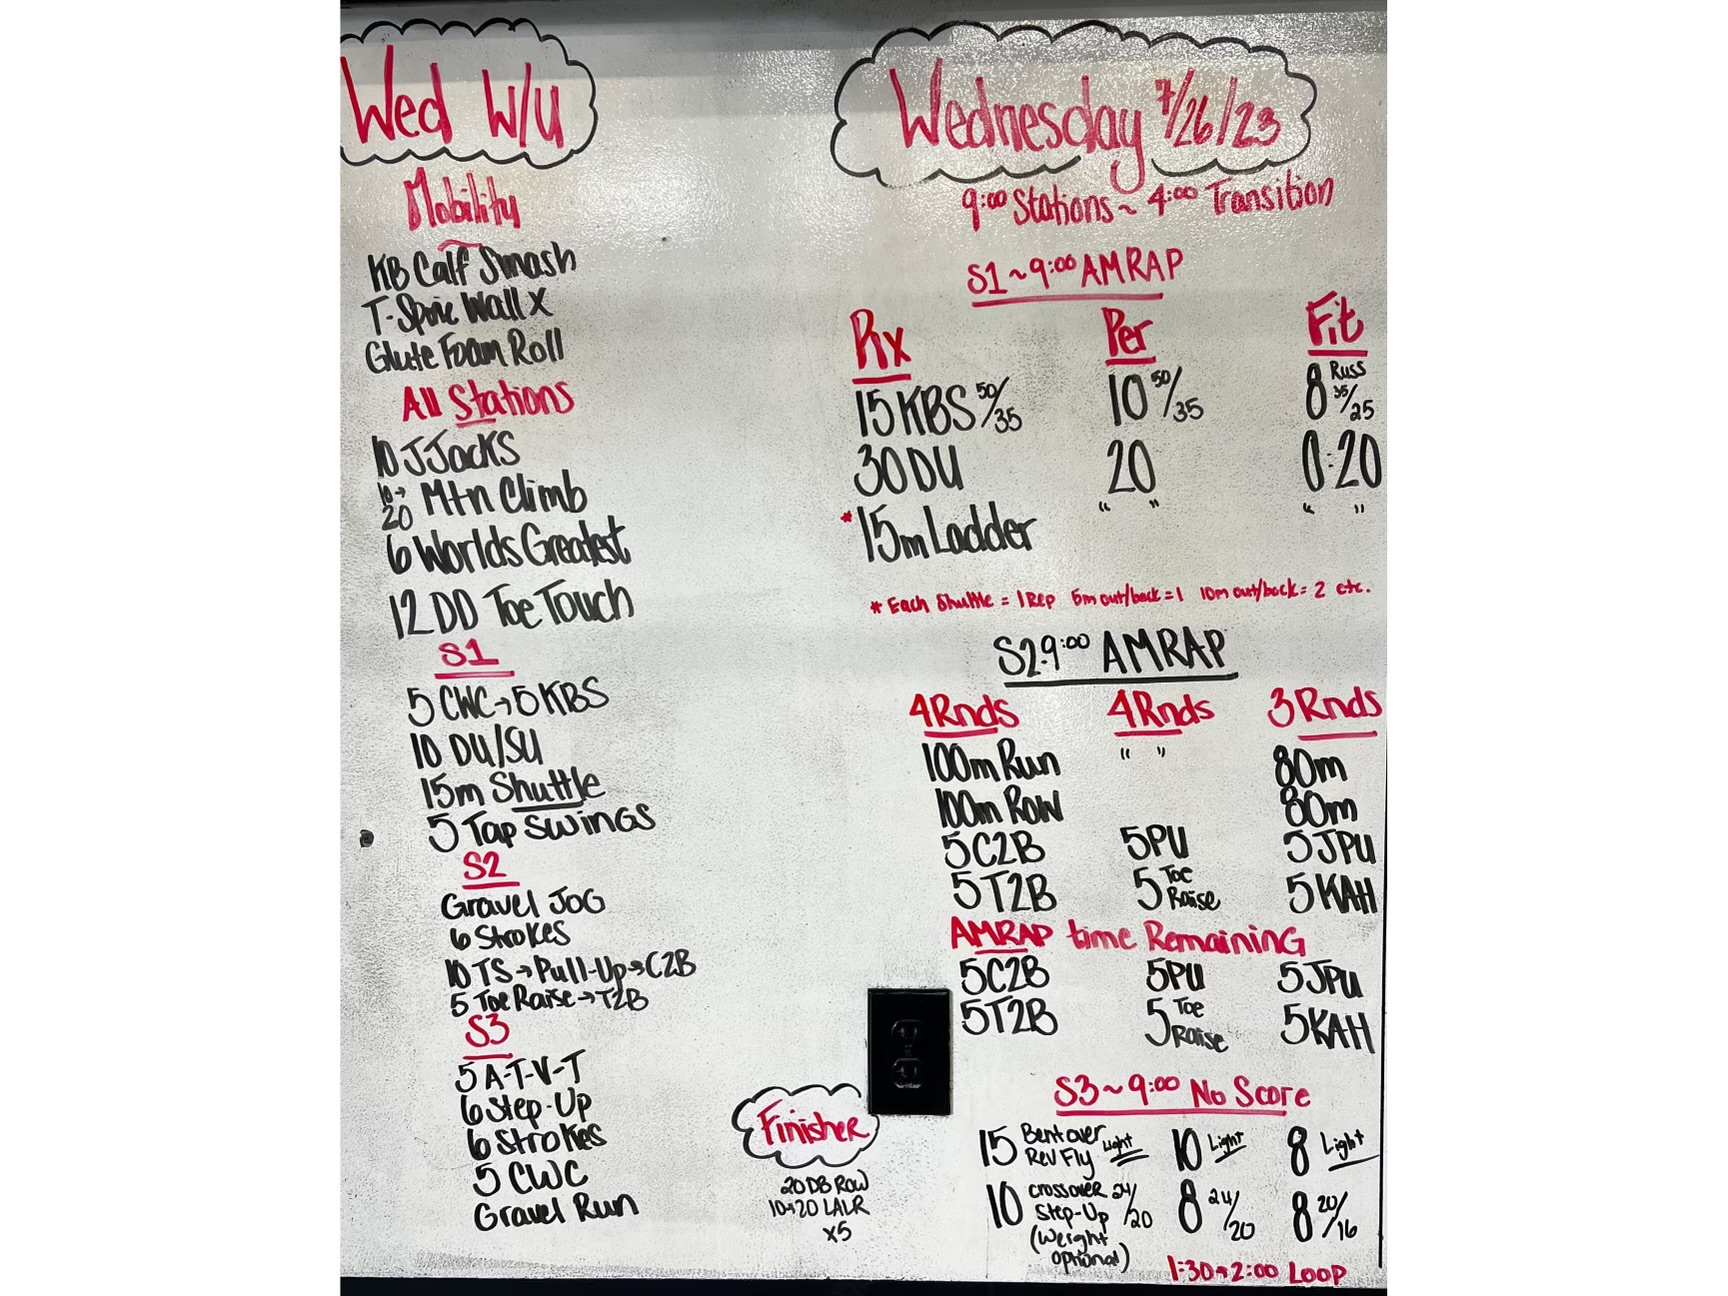 Wed W/U
Mobility
KB Calf Smash
T-Spine Wall X
Glute Foam Roll
All Stations
10 JJacks
10→20 Mtn Climb
6 Worlds Greatest
12 DD Toe Touch
S1
5 CWC→5 KBS
10 DU/SU
15m Shuttle
5 Tap Swings
S2
Gravel Jog
6 Strokes
10 TS→Pull-Up→C2B
5 Toe Raise→T2B
S3
5 A-T-V-T
6 Step-Up
6 Strokes
5 CWC
Gravel Run
Finisher
20 DB Row
10→20 LALR
x5
Wednesday 7/26/23
9:00 Stations ~ 4:00 Transition
S1 ~ 9:00 AMRAP
Rx Per Fit
15 KBS 50/35 10 50/35 8 Russ 35/25
30 DU 20 0:20
*15m Ladder " " " "
* Each Shuttle = 1 Rep 5m out/back = 1 10m out/back = 2 etc.
S2 9:00 AMRAP
4 Rnds 4 Rnds 3 Rnds
100m Run " " 80m
100m Row 80m
5 C2B 5 PU 5 JPU
5 T2B 5 Toe Raise 5 KAH
AMRAP time Remaining
5 C2B 5 PU 5 JPU
5 T2B 5 Toe Raise 5 KAH
S3 ~ 9:00 No Score
15 Bent over Rev Fly Light 10 Light 8 Light
10 Crossover Step-Up 24/20 (Weight optional) 8 24/20 8 20/16
1:30→2:00 Loop